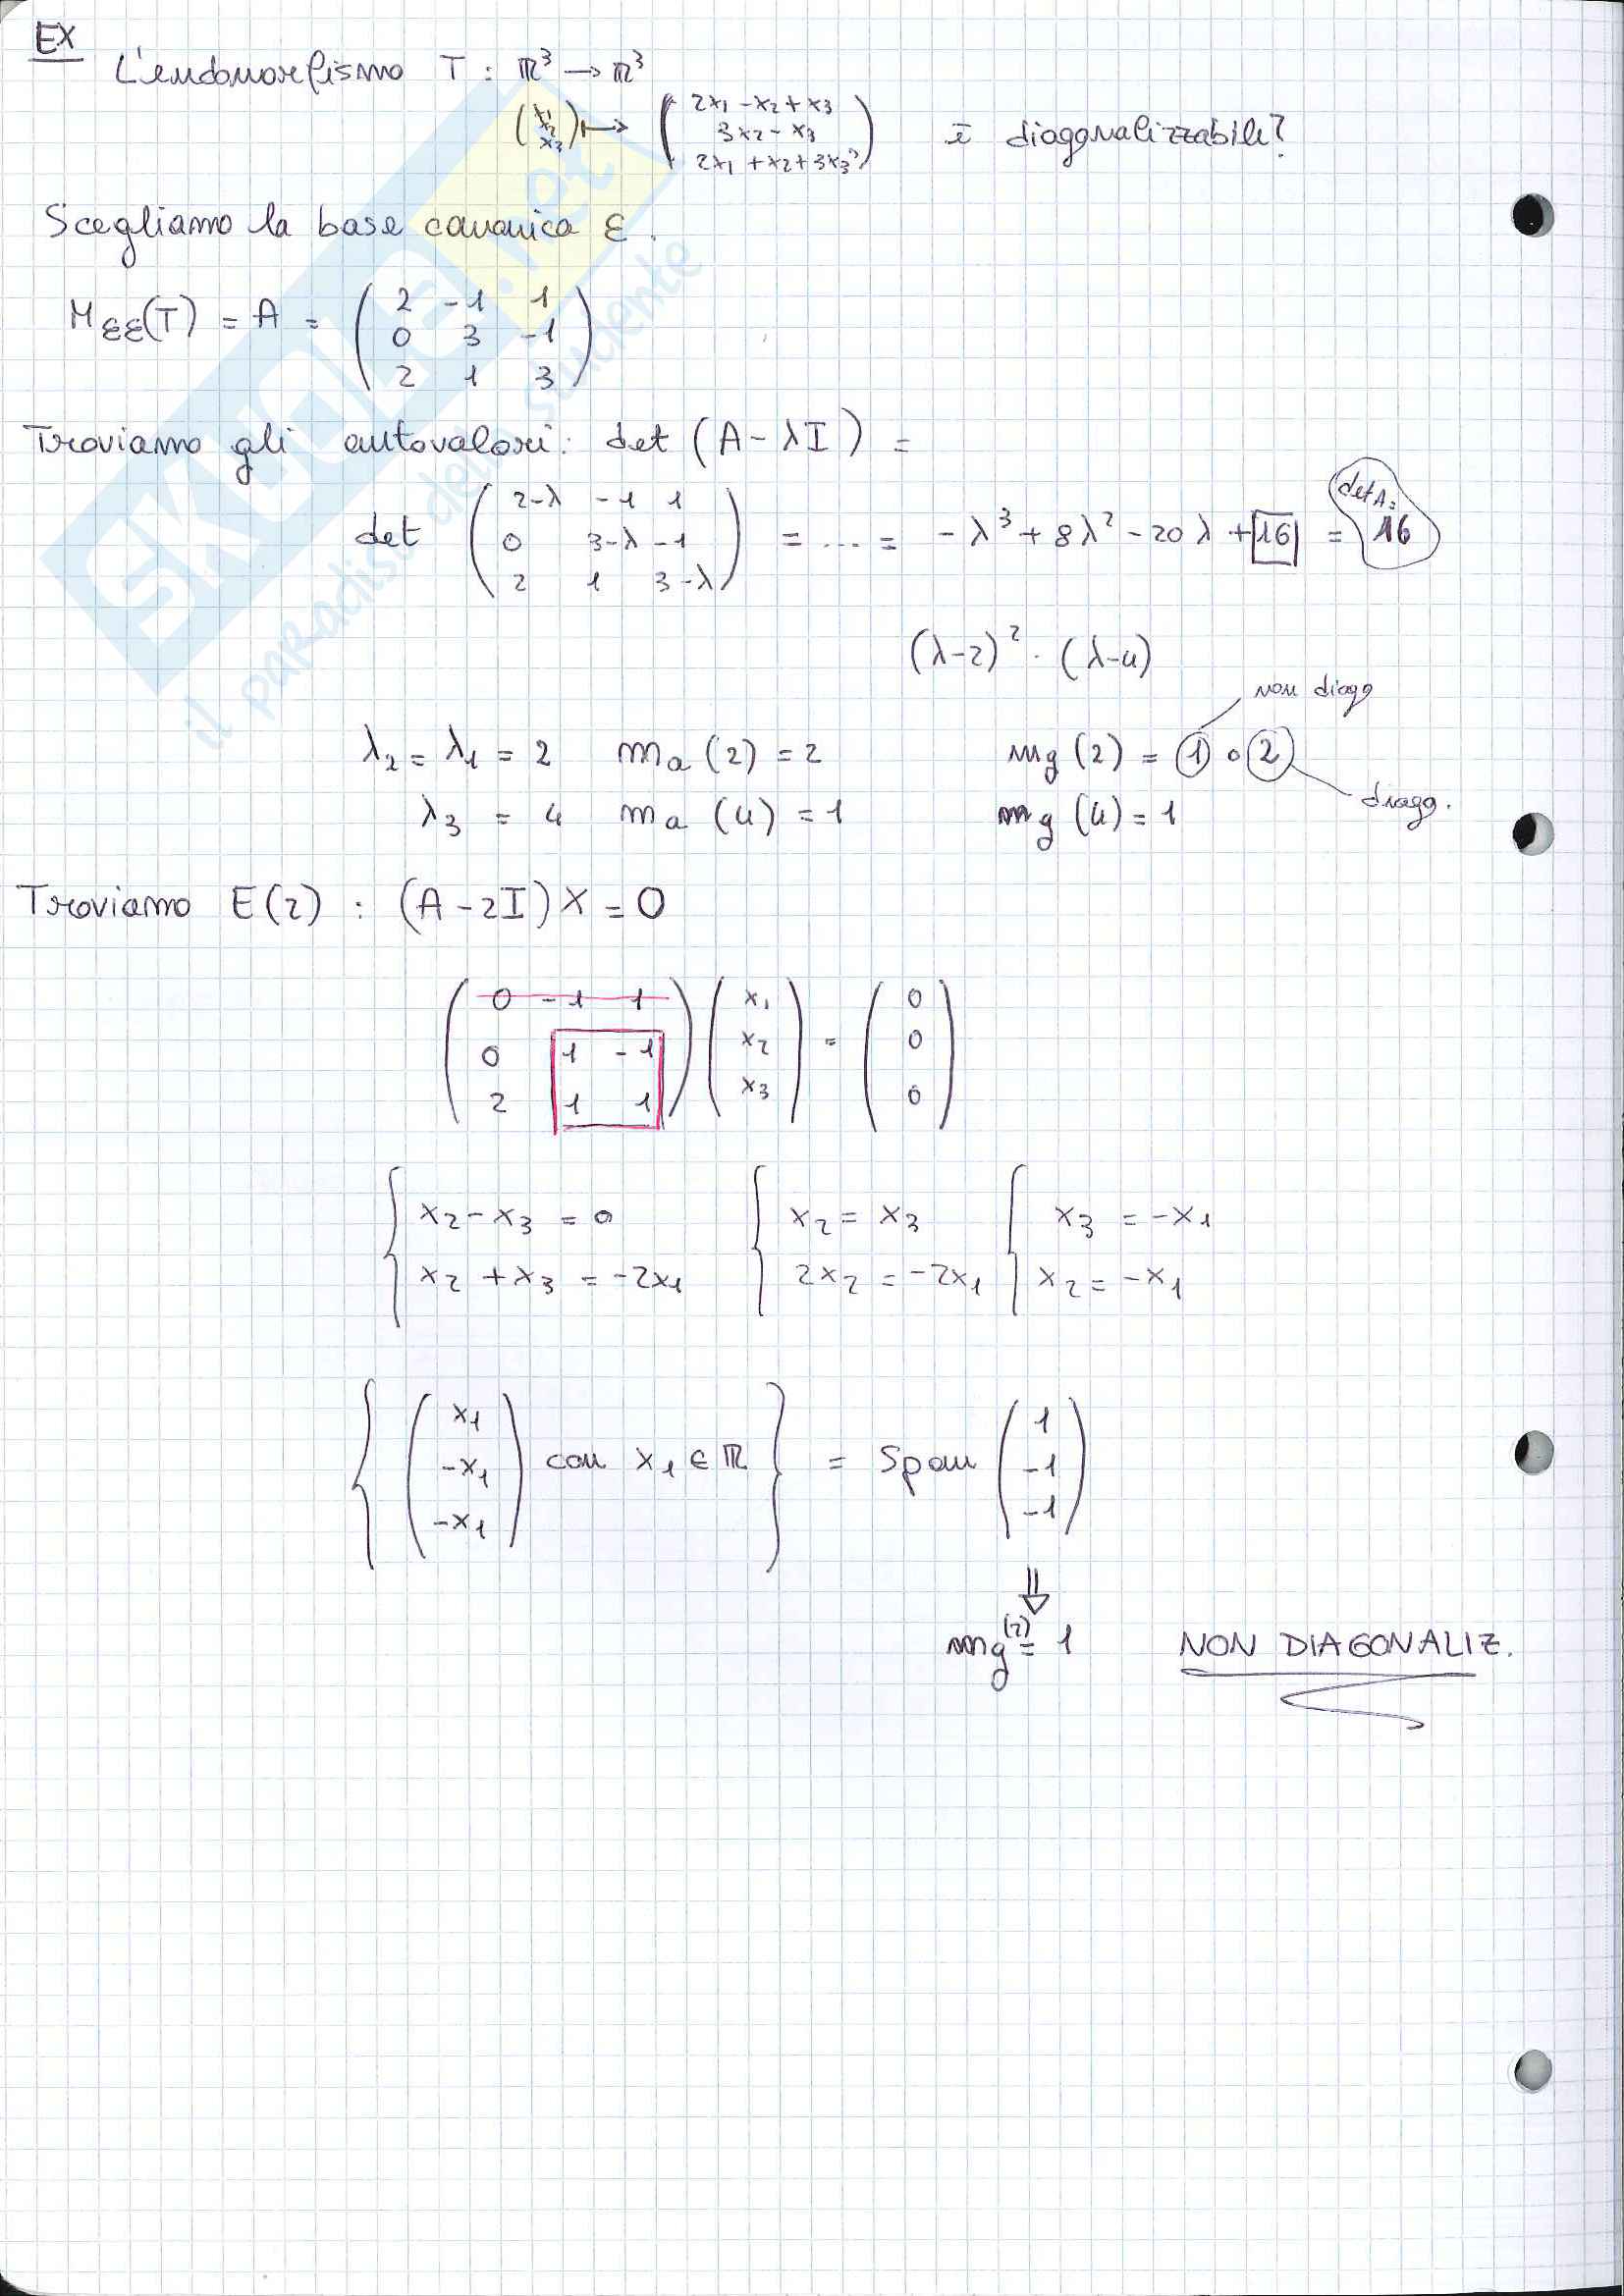 EX
L'endomorfismo T : ℝ³ → ℝ³
(x₁ x₂ x₃) ↦ (2x₁ - x₂ + x₃
3x₂ - x₃
2x₁ + x₂ + 3x₃) è diagonalizzabile?
Scegliamo la base canonica ε.
M_εε(T) = A = ( 2 -1 1
0 3 -1
2 1 3 )
Troviamo gli autovalori: det (A - λI) =
det ( 2-λ -1 1
0 3-λ -1
2 1 3-λ ) = ... = -λ³ + 8λ² - 20λ + 16 = det A = 16
(λ-2)² · (λ-4)
non diag
λ₂ = λ₁ = 2 ma (2) = 2 mg (2) = 1 o 2
diag.
λ₃ = 4 ma (4) = 1 mg (4) = 1
Troviamo E(2) : (A - 2I) X = 0
( 0 -1 1
0 1 -1
2 1 1 ) ( x₁ x₂ x₃ ) = ( 0 0 0 )
{ x₂ - x₃ = 0 { x₂ = x₃ { x₃ = -x₁
x₂ + x₃ = -2x₁ 2x₂ = -2x₁ x₂ = -x₁
{ ( x₁ -x₁ -x₁ ) con x₁ ∈ ℝ } = Span ( 1 -1 -1 )
⇓
mg(2) = 1 NON DIAGONALIZ.
SKUOLA.net
il paradiso dello studente